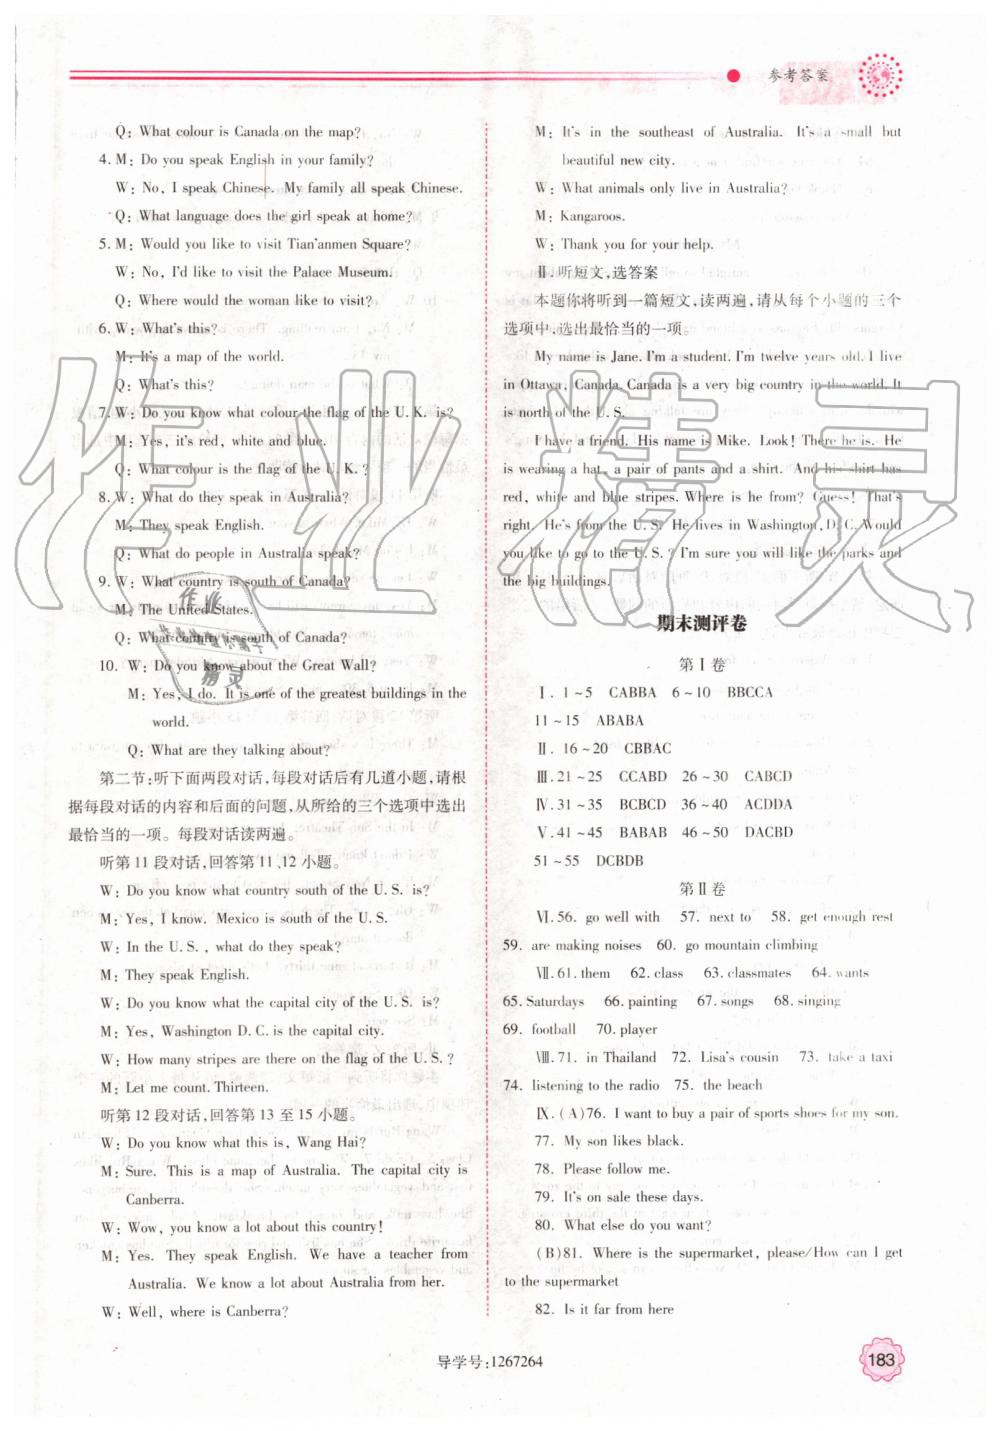 参考答案
Q: What colour is Canada on the map?
4. M: Do you speak English in your family?
W: No, I speak Chinese. My family all speak Chinese.
Q: What language does the girl speak at home?
5. M: Would you like to visit Tian'anmen Square?
W: No, I'd like to visit the Palace Museum.
Q: Where would the woman like to visit?
6. W: What's this?
M: It's a map of the world.
Q: What's this?
7. W: Do you know what colour the flag of the U. K. is?
M: Yes, it's red, white and blue.
Q: What colour is the flag of the U. K. ?
8. W: What do they speak in Australia?
M: They speak English.
Q: What do people in Australia speak?
9. W: What country is south of Canada?
M: The United States.
Q: What country is south of Canada?
10. W: Do you know about the Great Wall?
M: Yes, I do. It is one of the greatest buildings in the
world.
Q: What are they talking about?
第二节:听下面两段对话,每段对话后有几道小题,请根
据每段对话的内容和后面的问题,从所给的三个选项中选出
最恰当的一项。每段对话读两遍。
听第 11 段对话,回答第 11、12 小题。
W: Do you know what country south of the U. S. is?
M: Yes, I know. Mexico is south of the U. S.
W: In the U. S. , what do they speak?
M: They speak English.
W: Do you know what the capital city of the U. S. is?
M: Yes, Washington D. C. is the capital city.
W: How many stripes are there on the flag of the U. S. ?
M: Let me count. Thirteen.
听第 12 段对话,回答第 13 至 15 小题。
W: Do you know what this is, Wang Hai?
M: Sure. This is a map of Australia. The capital city is
Canberra.
W: Wow, you know a lot about this country!
M: Yes. They speak English. We have a teacher from
Australia. We know a lot about Australia from her.
W: Well, where is Canberra?
M: It's in the southeast of Australia. It's a small but
beautiful new city.
W: What animals only live in Australia?
M: Kangaroos.
W: Thank you for your help.
Ⅱ. 听短文,选答案
本题你将听到一篇短文,读两遍,请从每个小题的三个
选项中,选出最恰当的一项。
My name is Jane. I'm a student. I'm twelve years old. I live
in Ottawa, Canada. Canada is a very big country in the world. It
is north of the U. S.
I have a friend. His name is Mike. Look! There he is. He
is wearing a hat, a pair of pants and a shirt. And his shirt has
red, white and blue stripes. Where is he from? Guess! That's
right. He's from the U. S. He lives in Washington, D. C. Would
you like to go to the U. S. ? I'm sure you will like the parks and
the big buildings.
期末测评卷
第Ⅰ卷
Ⅰ. 1~5 CABBA 6~10 BBCCA
11~15 ABABA
Ⅱ. 16~20 CBBAC
Ⅲ. 21~25 CCABD 26~30 CABCD
Ⅳ. 31~35 BCBCD 36~40 ACDDA
Ⅴ. 41~45 BABAB 46~50 DACBD
51~55 DCBDB
第Ⅱ卷
Ⅵ. 56. go well with 57. next to 58. get enough rest
59. are making noises 60. go mountain climbing
Ⅶ. 61. them 62. class 63. classmates 64. wants
65. Saturdays 66. painting 67. songs 68. singing
69. football 70. player
Ⅷ. 71. in Thailand 72. Lisa's cousin 73. take a taxi
74. listening to the radio 75. the beach
Ⅸ. (A)76. I want to buy a pair of sports shoes for my son.
77. My son likes black.
78. Please follow me.
79. It's on sale these days.
80. What else do you want?
(B)81. Where is the supermarket, please/How can I get
to the supermarket
82. Is it far from here
导学号:1267264
183
作业精灵